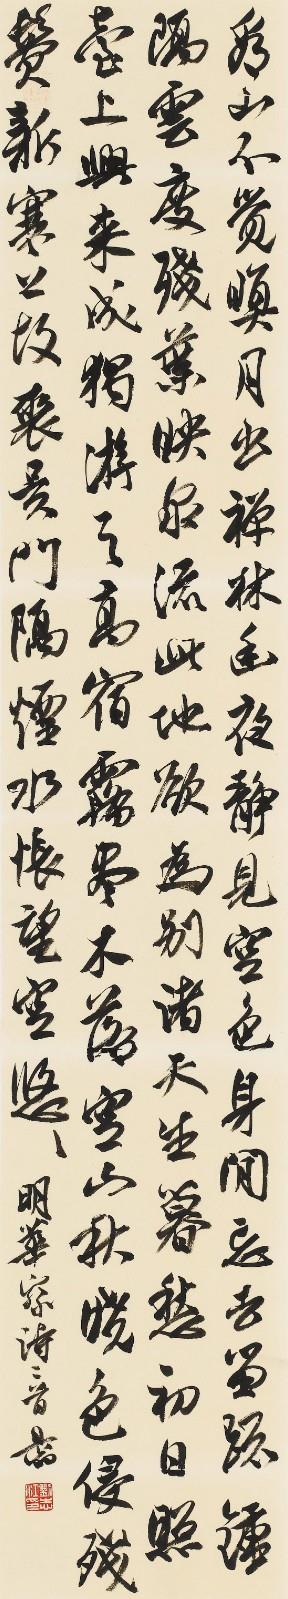 看山不覺暝月出禪林幽夜靜見空色身閒忘去留疏鐘
隔雲度殘葉映泉流此地欲為別諸天生暮愁初日照
臺上興來成獨游天高宿霧卷木落空山秋曉色侵殘
鬢新寒上故裘吳門隔煙水悵望空悠悠
明華察詩二首